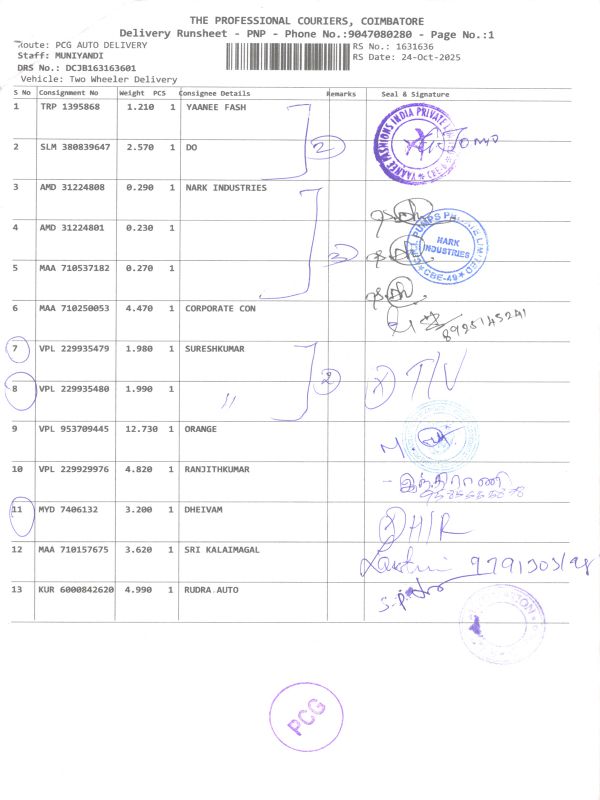 THE PROFESSIONAL COURIERS, COIMBATORE
Delivery Runsheet - PNP - Phone No.:9047080280 - Page No.:1
Route: PCG AUTO DELIVERY RS No.: 1631636
Staff: MUNIYANDI RS Date: 24-Oct-2025
DRS No.: DCJB163163601
Vehicle: Two Wheeler Delivery
S No Consignment No Weight PCS Consignee Details Remarks Seal & Signature
1 TRP 1395868 1.210 1 YAANEE FASH
2 SLM 380839647 2.570 1 DO 2
3 AMD 31224808 0.290 1 NARK INDUSTRIES
4 AMD 31224801 0.230 1 HARK INDUSTRIES
5 MAA 710537182 0.270 1 3
6 MAA 710250053 4.470 1 CORPORATE CON 8995145241
7 VPL 229935479 1.980 1 SURESHKUMAR
8 VPL 229935480 1.990 1 〃 2 T/V
9 VPL 953709445 12.730 1 ORANGE
10 VPL 229929976 4.820 1 RANJITHKUMAR
11 MYD 7406132 3.200 1 DHEIVAM
12 MAA 710157675 3.620 1 SRI KALAIMAGAL
13 KUR 6000842620 4.990 1 RUDRA AUTO
PCG